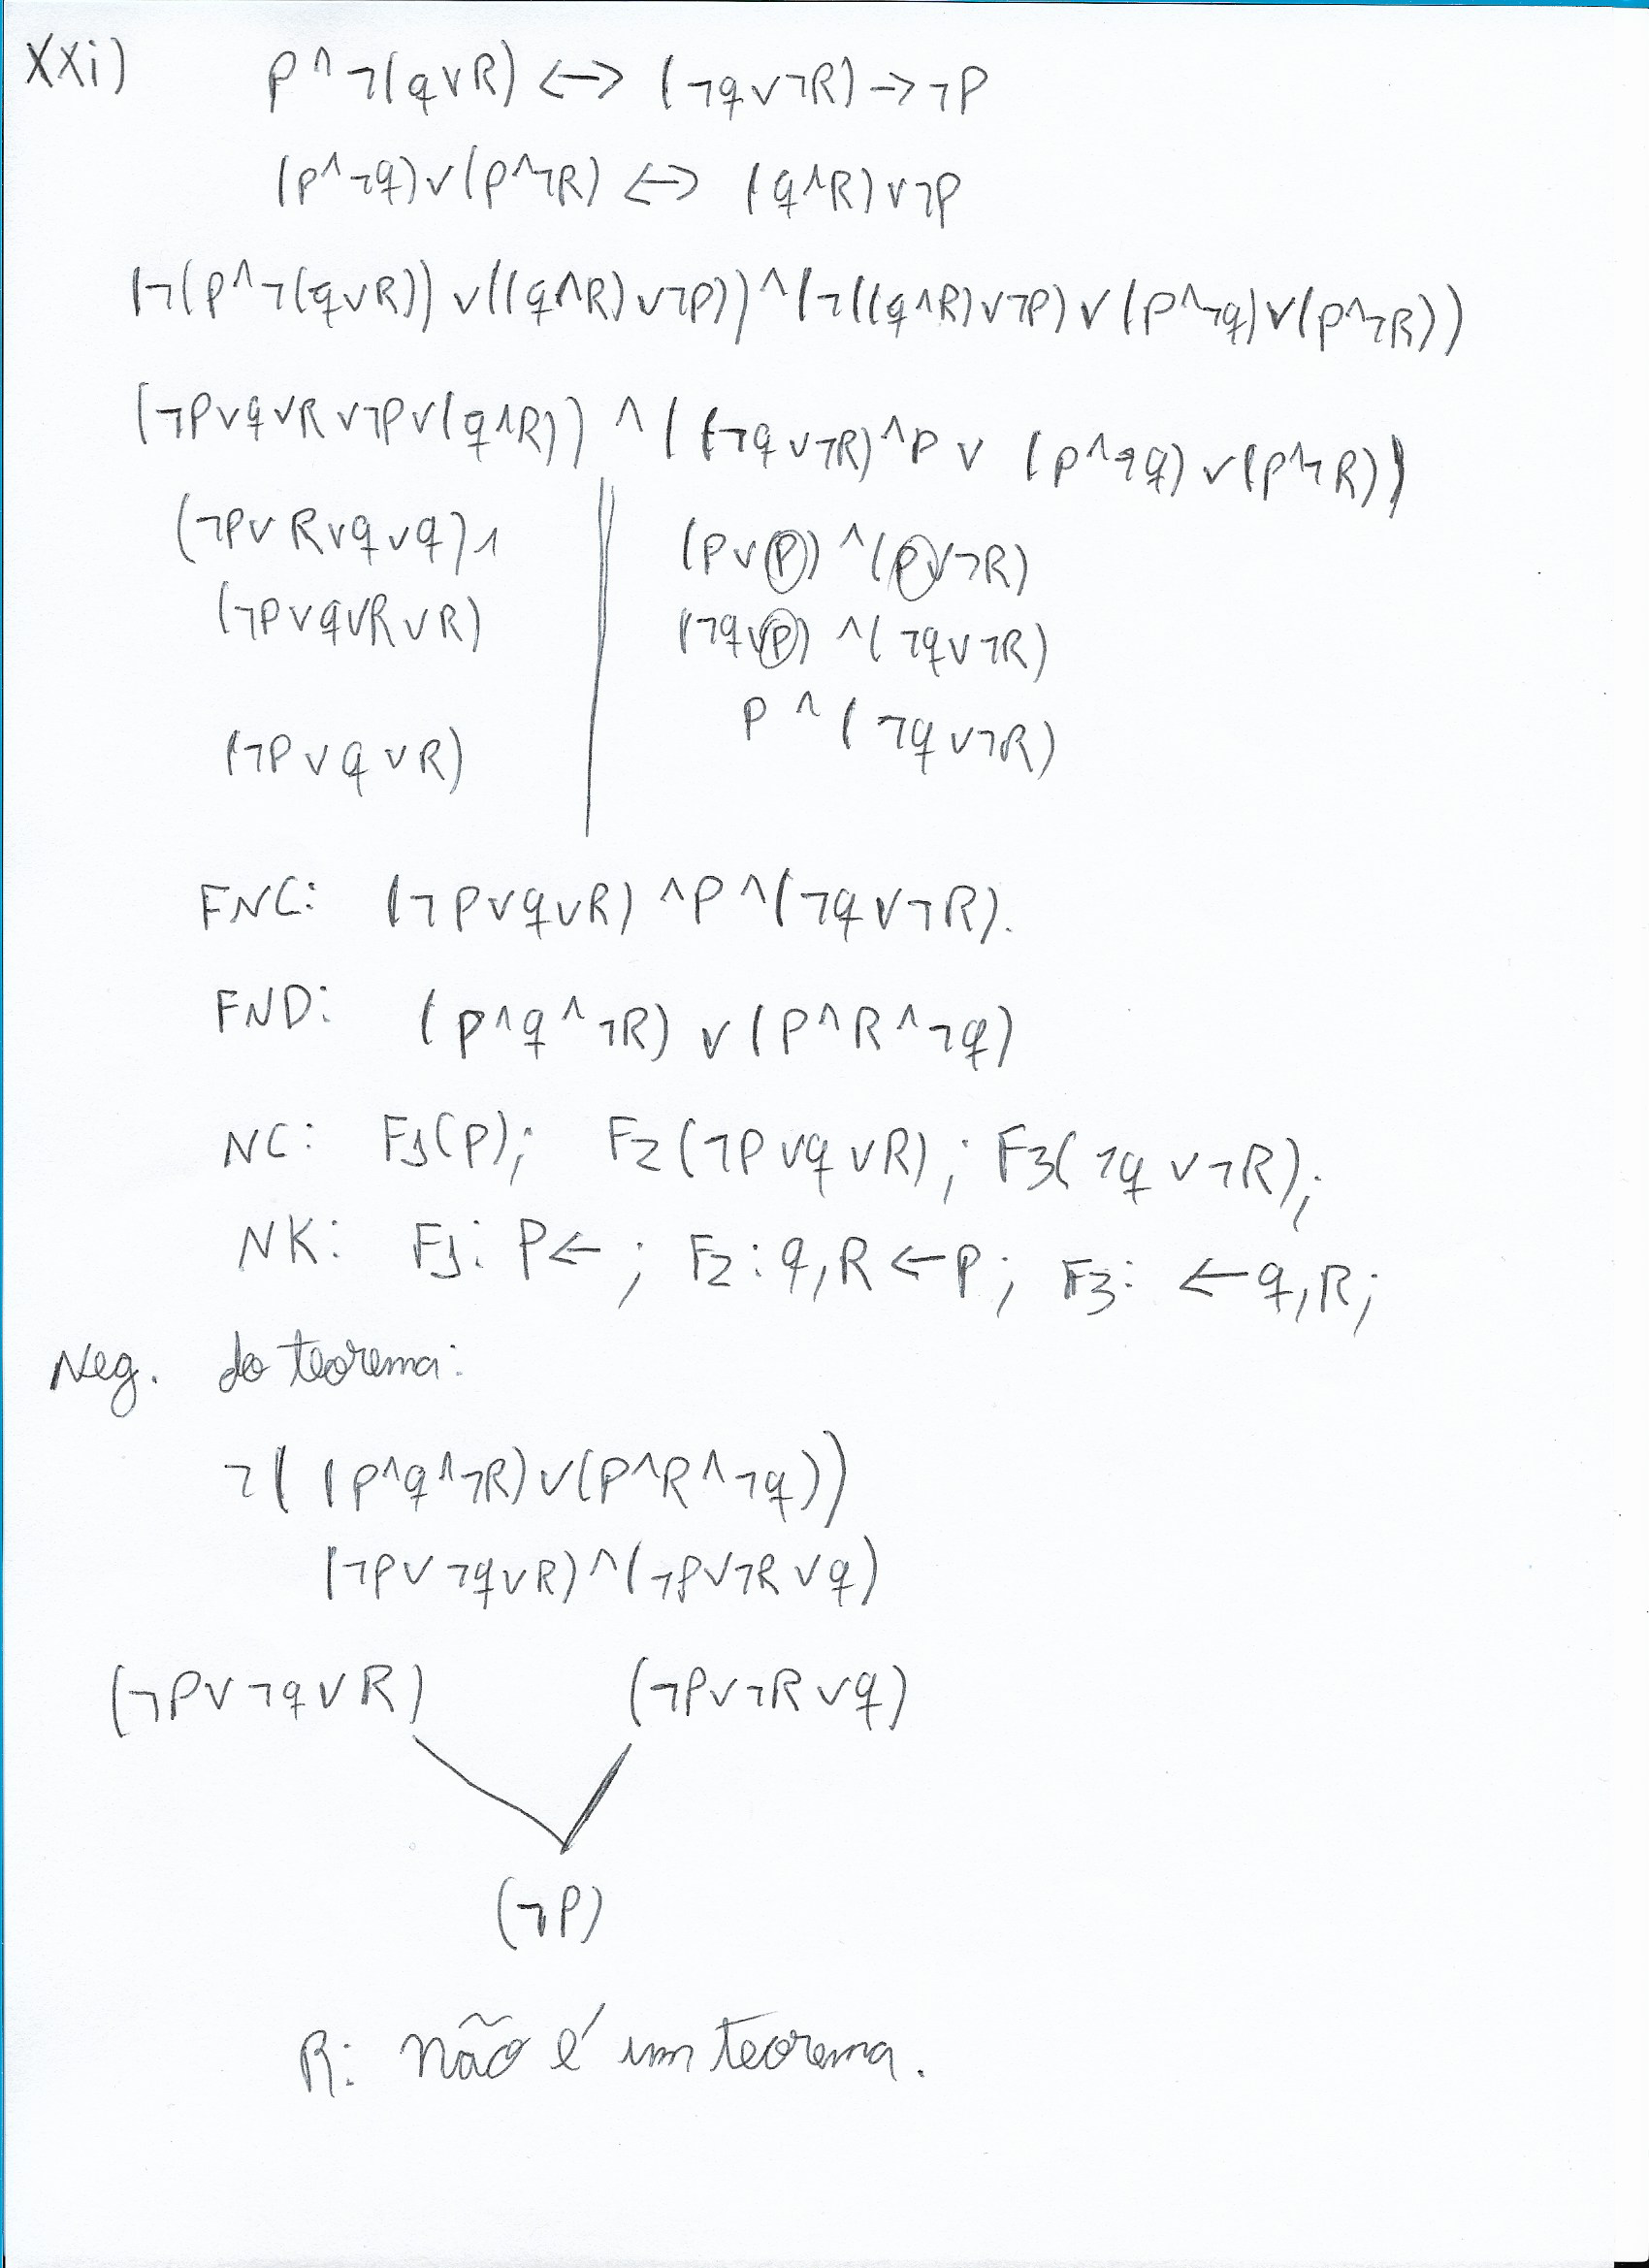 XXi) P ^ ¬(q ∨ R) <-> (¬q ∨ ¬R) -> ¬P
(P ^ ¬q) ∨ (P ^ ¬R) <-> (q ^ R) ∨ ¬P
(¬(P ^ ¬(q ∨ R)) ∨ ((q ^ R) ∨ ¬P)) ^ (¬((q ^ R) ∨ ¬P) ∨ (P ^ ¬q) ∨ (P ^ ¬R))
(¬P ∨ q ∨ R ∨ ¬P ∨ (q ^ R)) ^ ((¬q ∨ ¬R) ^ P ∨ (P ^ ¬q) ∨ (P ^ ¬R))
(¬P ∨ R ∨ q ∨ q) ^ (P ∨ P) ^ (P ∨ ¬R)
(¬P ∨ q ∨ R ∨ R) (¬q ∨ P) ^ (¬q ∨ ¬R)
(¬P ∨ q ∨ R) P ^ (¬q ∨ ¬R)
FNC: (¬P ∨ q ∨ R) ^ P ^ (¬q ∨ ¬R).
FND: (P ^ q ^ ¬R) ∨ (P ^ R ^ ¬q)
NC: F1(P); F2(¬P ∨ q ∨ R); F3(¬q ∨ ¬R);
NK: F1: P ←; F2: q, R ← P; F3: ← q, R;
Neg. do teorema:
¬((P ^ q ^ ¬R) ∨ (P ^ R ^ ¬q))
(¬P ∨ ¬q ∨ R) ^ (¬P ∨ ¬R ∨ q)
(¬P ∨ ¬q ∨ R) (¬P ∨ ¬R ∨ q)
(¬P)
R: não é um teorema.